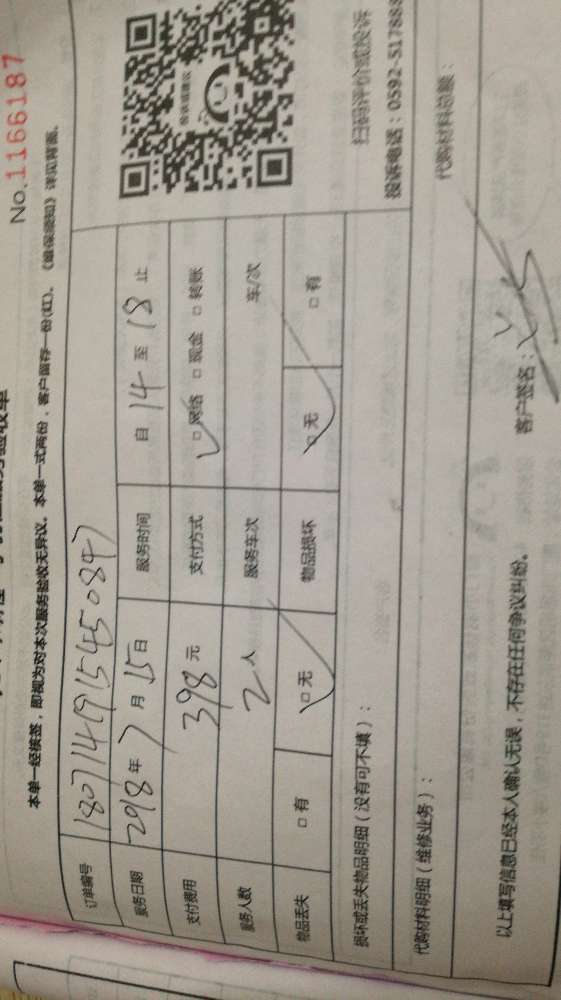 No.1166187
本单一经核签，即视为对本次服务验收无异议。本单一式两份，客户留存一份(红)。《维保须知》详见背面。
订单编号
服务日期 2018年7月15日 服务时间 自14至18止
支付费用 398元 支付方式 □网络 □现金 □转账
服务人数 2人 服务车次 车/次
物品丢失 □有 □无 物品损坏 □无 □有
损坏或丢失物品明细（没有可不填）：
扫码评价或投诉
投诉电话：0592-517888
代购材料明细（维修业务）：
代购材料总额：
以上填写信息已经本人确认无误，不存在任何争议纠纷。
客户签名：